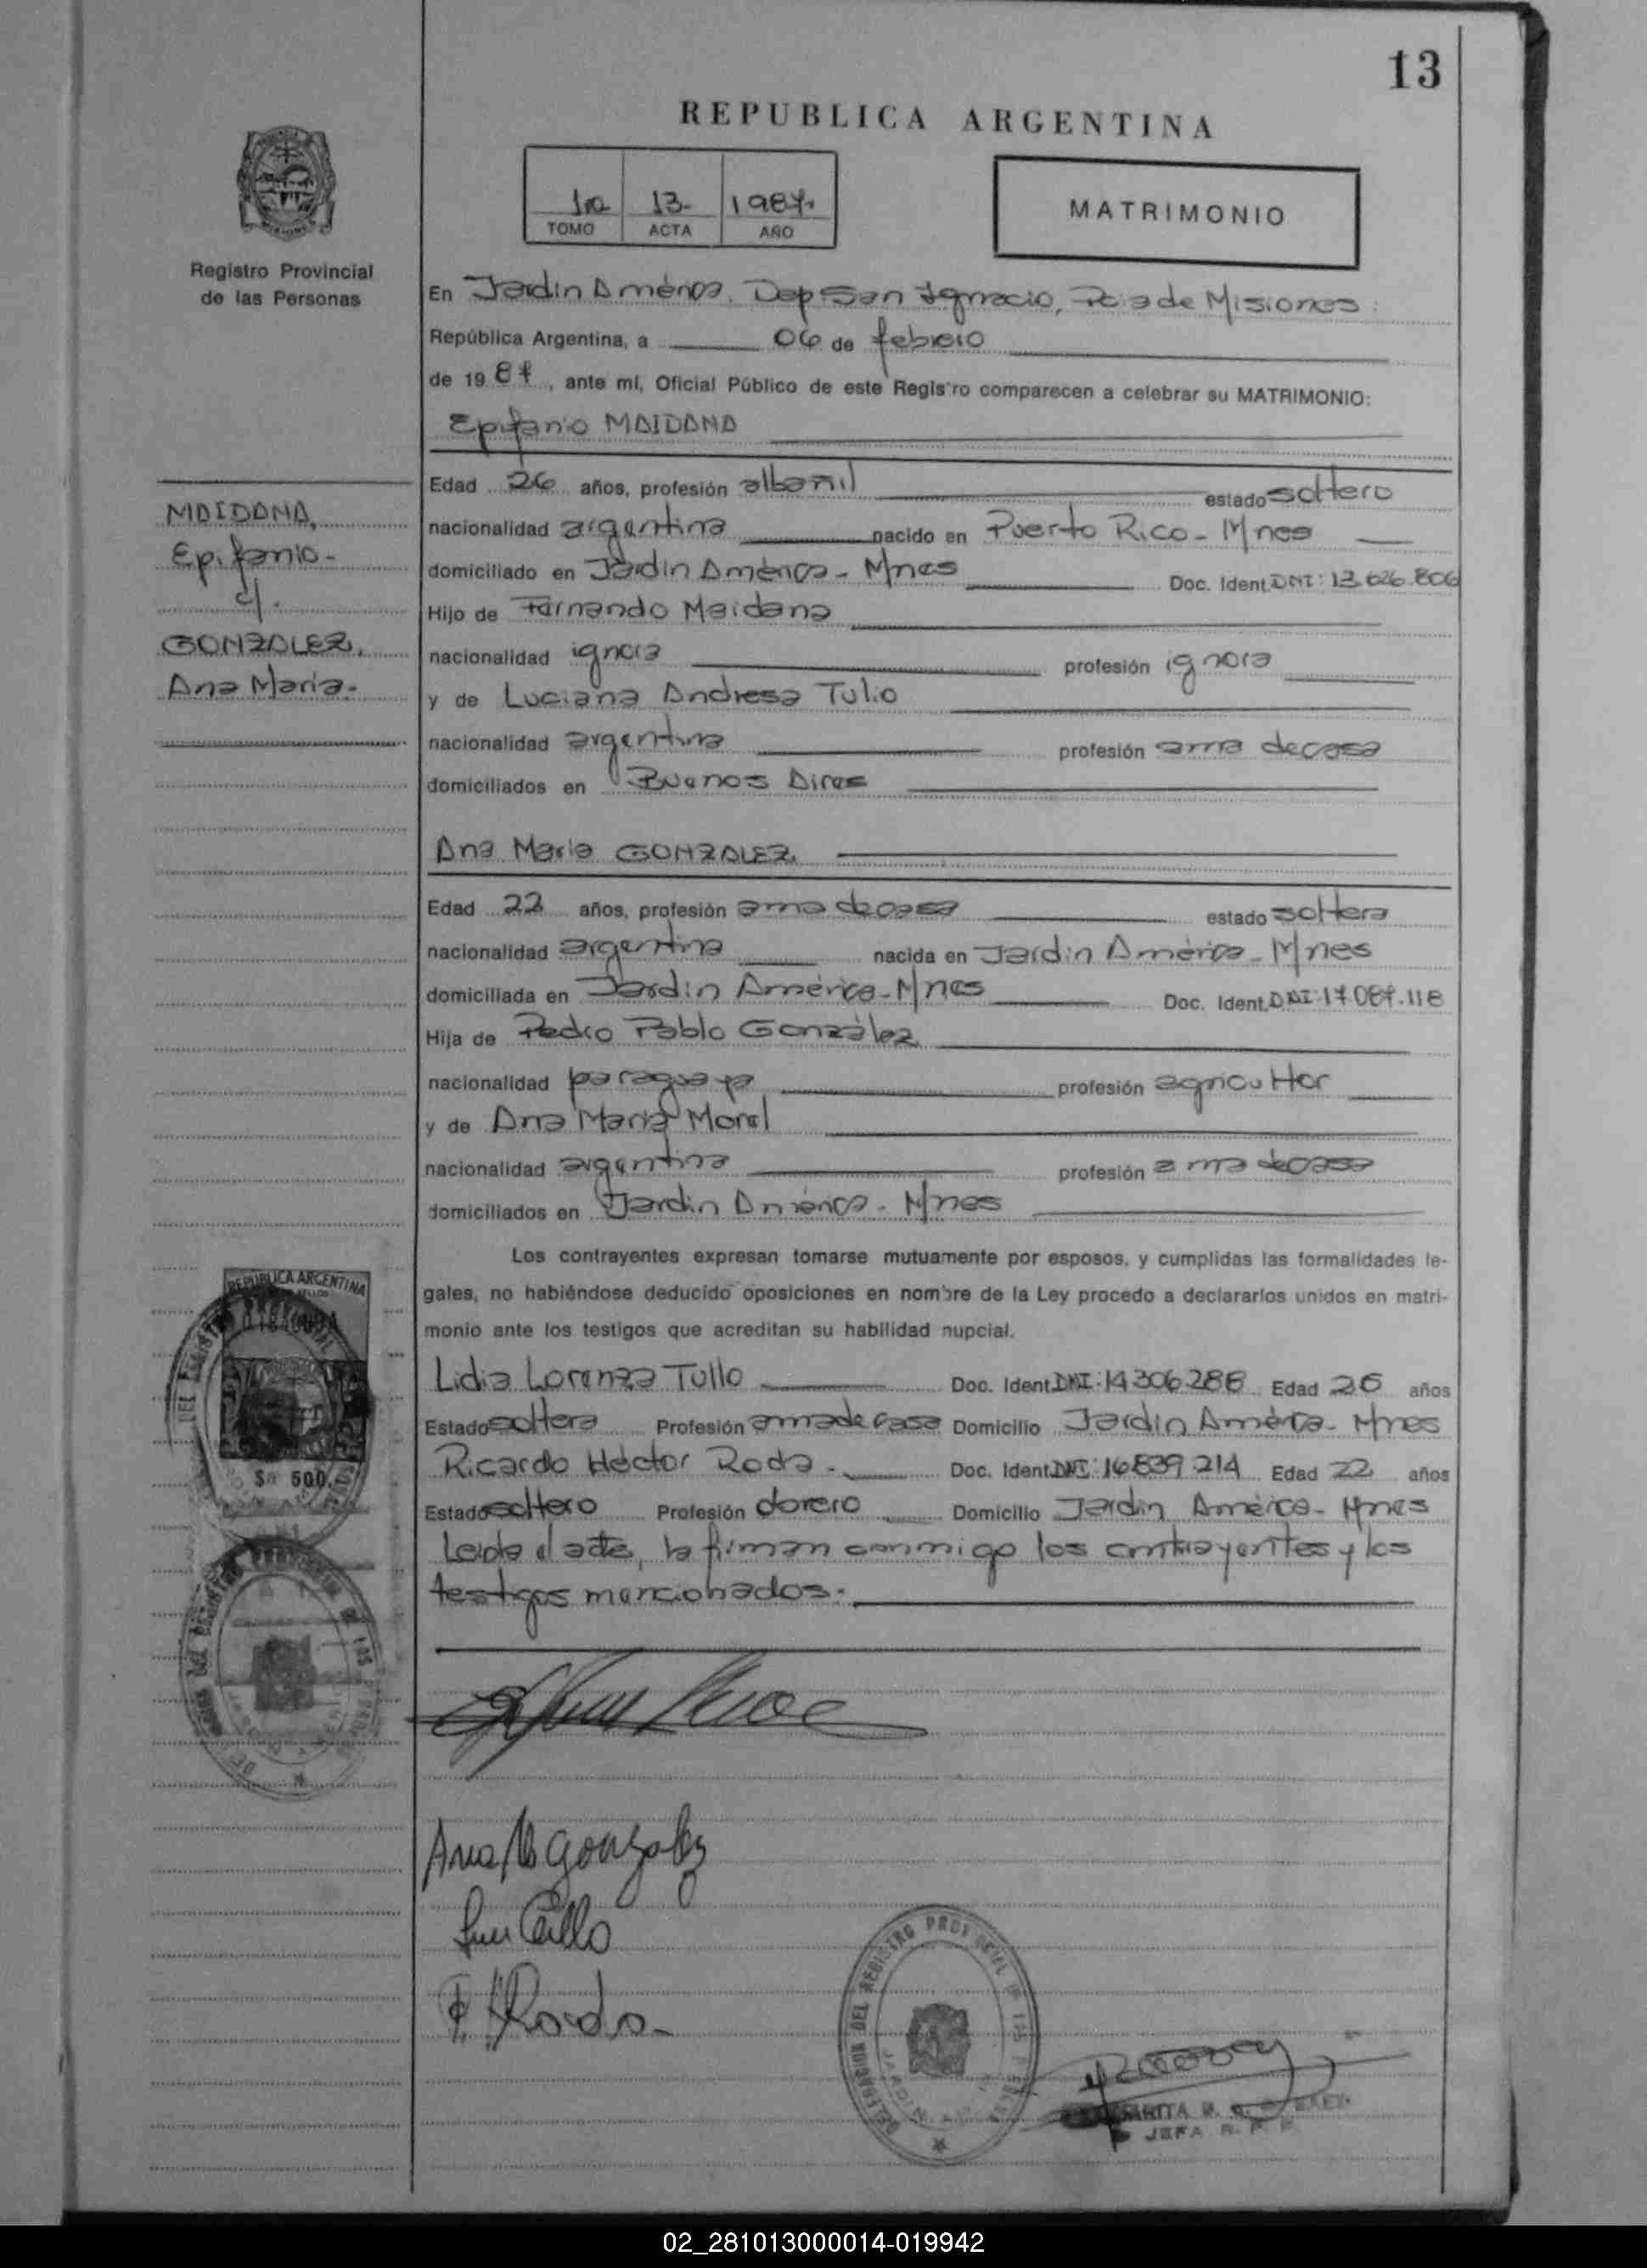 13
REPUBLICA ARGENTINA
1ro 13- 1987.
TOMO ACTA AÑO
MATRIMONIO
Registro Provincial
de las Personas
En Jardín América, Dep San Ignacio, Pcia de Misiones.
República Argentina, a 06 de febrero
de 1987, ante mí, Oficial Público de este Registro comparecen a celebrar su MATRIMONIO:
Epifanio MAIDANA
MAIDANA,
Epifanio-
c/.
GONZALEZ,
Ana María.
Edad 26 años, profesión albañil estado soltero
nacionalidad argentina nacido en Puerto Rico- Mnes
domiciliado en Jardín América- Mnes Doc. Ident. DNI: 13.626.806
Hijo de Fernando Maidana
nacionalidad ignora profesión ignora
y de Luciana Andresa Tulio
nacionalidad argentina profesión ama de casa
domiciliados en Buenos Aires
Ana María GONZALEZ
Edad 22 años, profesión ama de casa estado soltera
nacionalidad argentina nacida en Jardín América- Mnes
domiciliada en Jardín América- Mnes Doc. Ident. DNI: 17.087.118
Hija de Pedro Pablo González
nacionalidad paraguaya profesión agricultor
y de Ana María Morel
nacionalidad argentina profesión ama de casa
domiciliados en Jardín América- Mnes
Los contrayentes expresan tomarse mutuamente por esposos, y cumplidas las formalidades le-
gales, no habiéndose deducido oposiciones en nombre de la Ley procedo a declararlos unidos en matri-
monio ante los testigos que acreditan su habilidad nupcial.
Lidia Lorenza Tullo Doc. Ident. DNI: 14306288 Edad 26 años
Estado soltera Profesión ama de casa Domicilio Jardín América- Mnes
Ricardo Héctor Roda.- Doc. Ident. DNI: 16839214 Edad 22 años
Estado soltero Profesión obrero Domicilio Jardín América- Mnes
Leída el acta, la firman conmigo los contrayentes y los
testigos mencionados.-
REPUBLICA ARGENTINA
$a 500.
Ana M González
JEFA R. P. P.
02_281013000014-019942